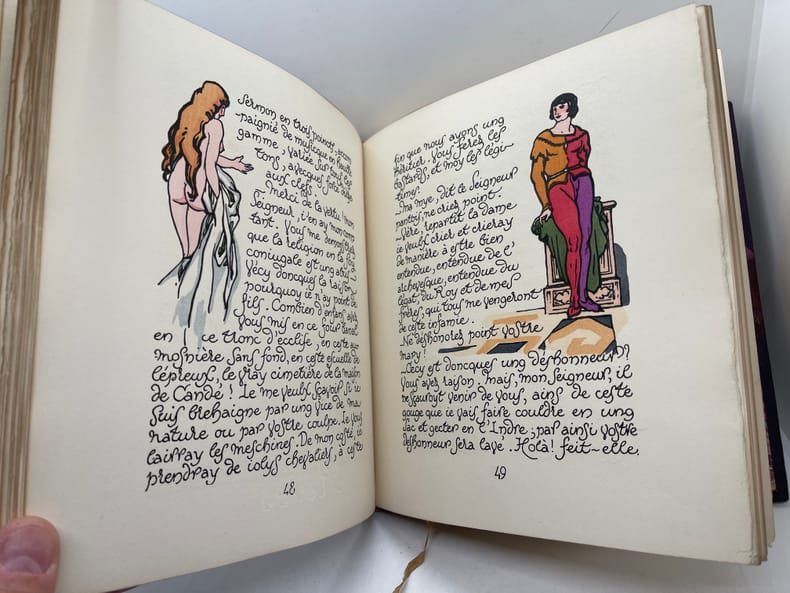 Sermon en troys poincts, accom
-paignié de musicque en haulte
gamme, variée sur tous les
tons, avecques force
aux clefs.
_ Merci de la vertu! mon
Seigneur, i'en ay mon comp
tant. Vous me demonstrez
que la religion en la foy
conjugale est ung abuz_
Vécy doncques la raison
pourquoy ie n'ay point de
fils. Combien d'enfans avez
Vous mis en ce four banal
en! ce tronc d'ecclise, en ceste au-
mosnière sans fond, en ceste escuelle de
lépreux, le vray cimetière de la maison
de Candé! Ie me veulx sçavoir si ie
suis brehaigne par ung vice de ma
nature ou par vostre coulpe. Ie vous
lairray les meschines. De mon costé, ie
prendray de iolys chevaliers, à ceste
48
fin que nous ayons ung
héritier. Vous ferez les
bastards, et moy les légi-
times.
_ Ma mye, dit le Seigneur
pantois, ne criez point.
_ Vère, repartit la dame
ie veulx crier et crieray
de manière à estre bien
entendue, entendue de l'
archevesque, entendue du
légat, du Roy et de mes
frères, qui tous me vengeront
de ceste infamie.
_ Ne deshonorez point vostre
mary!
_ Cecy est doncques ung deshonneur?
Vous avez raison. Mais, mon Seigneur, il
ne sçauroyt venir de vous, ains de ceste
gouge que ie vais faire couldre en ung
sac et gecter en l'Indre; par ainsi vostre
deshonneur sera lavé. Holà! feit-elle.
49